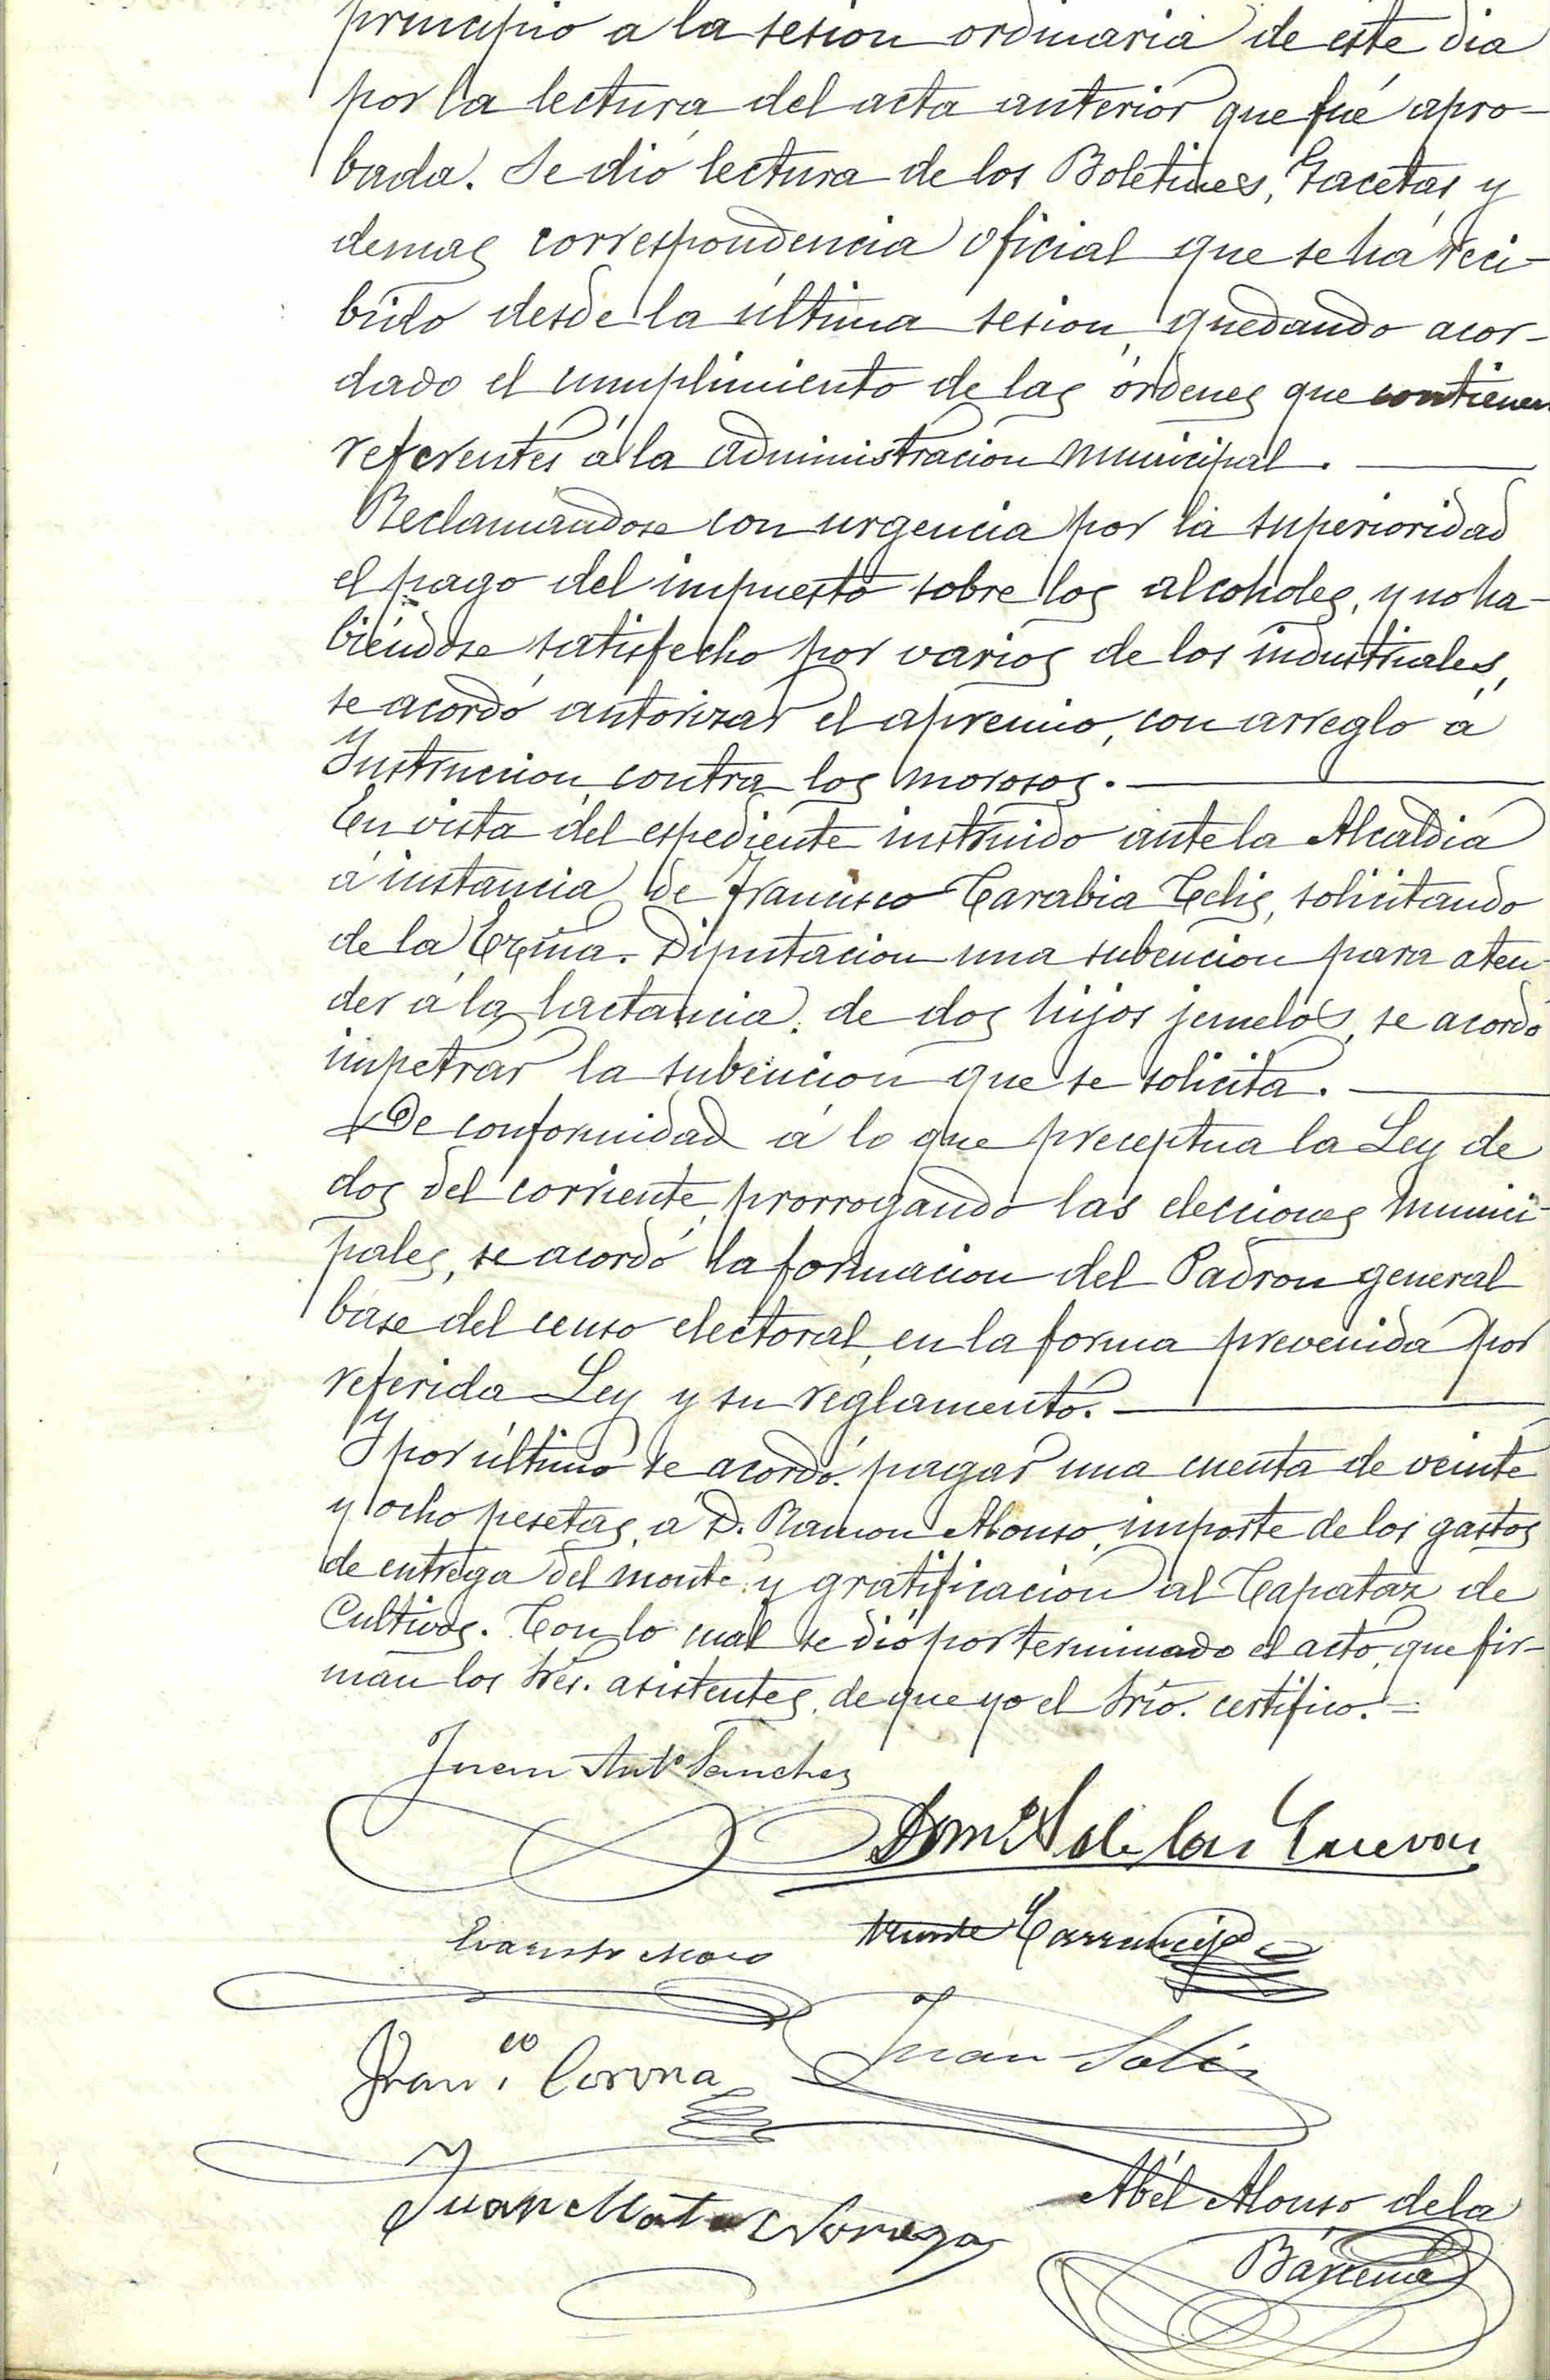 principio a la sesion ordinaria de este dia
por la lectura del acta anterior que fué apro-
bada. Se dió lectura de los Boletines, Gacetas y
demas correspondencia oficial que se há reci-
bido desde la última sesion, quedando acor-
dado el cumplimiento de las órdenes que contienen
referentes á la administracion municipal.
Reclamándose con urgencia por la superioridad
el pago del impuesto sobre los alcoholes, y no ha-
biéndose satisfecho por varios de los industriales,
se acordó autorizar el apremio, con arreglo á
Instruccion contra los morosos.
En vista del espediente instruido ante la Alcaldia
á instancia de Francisco Carabia Celis, solicitando
de la Excma. Diputacion una subencion para aten-
der á la lactancia de dos hijos jemelos, se acordó
impetrar la subencion que se solicita.
De conformidad á lo que preceptua la Ley de
dos del corriente, prorrogando las elecciones munici-
pales, se acordó la formacion del Padron general
base del censo electoral, en la forma prevenida por
referida Ley y su reglamento.
Y por último se acordó pagar una cuenta de veinte
y ocho pesetas, á D. Ramon Alonso, importe de los gastos
de entrega del monte y gratificacion al Capataz de
Cultivos. Con lo cual se dió por terminado el acto, que fir-
man los Sres. asistentes, de que yo el Srio. certifico.=
Juan Antº Sanchez
de las Cuevas
Vicente
Evaristo Moro
Juan Solis
Franᶜᵒ Corona
Juan Mata Noriega
Abél Alonso de la
Bárcena